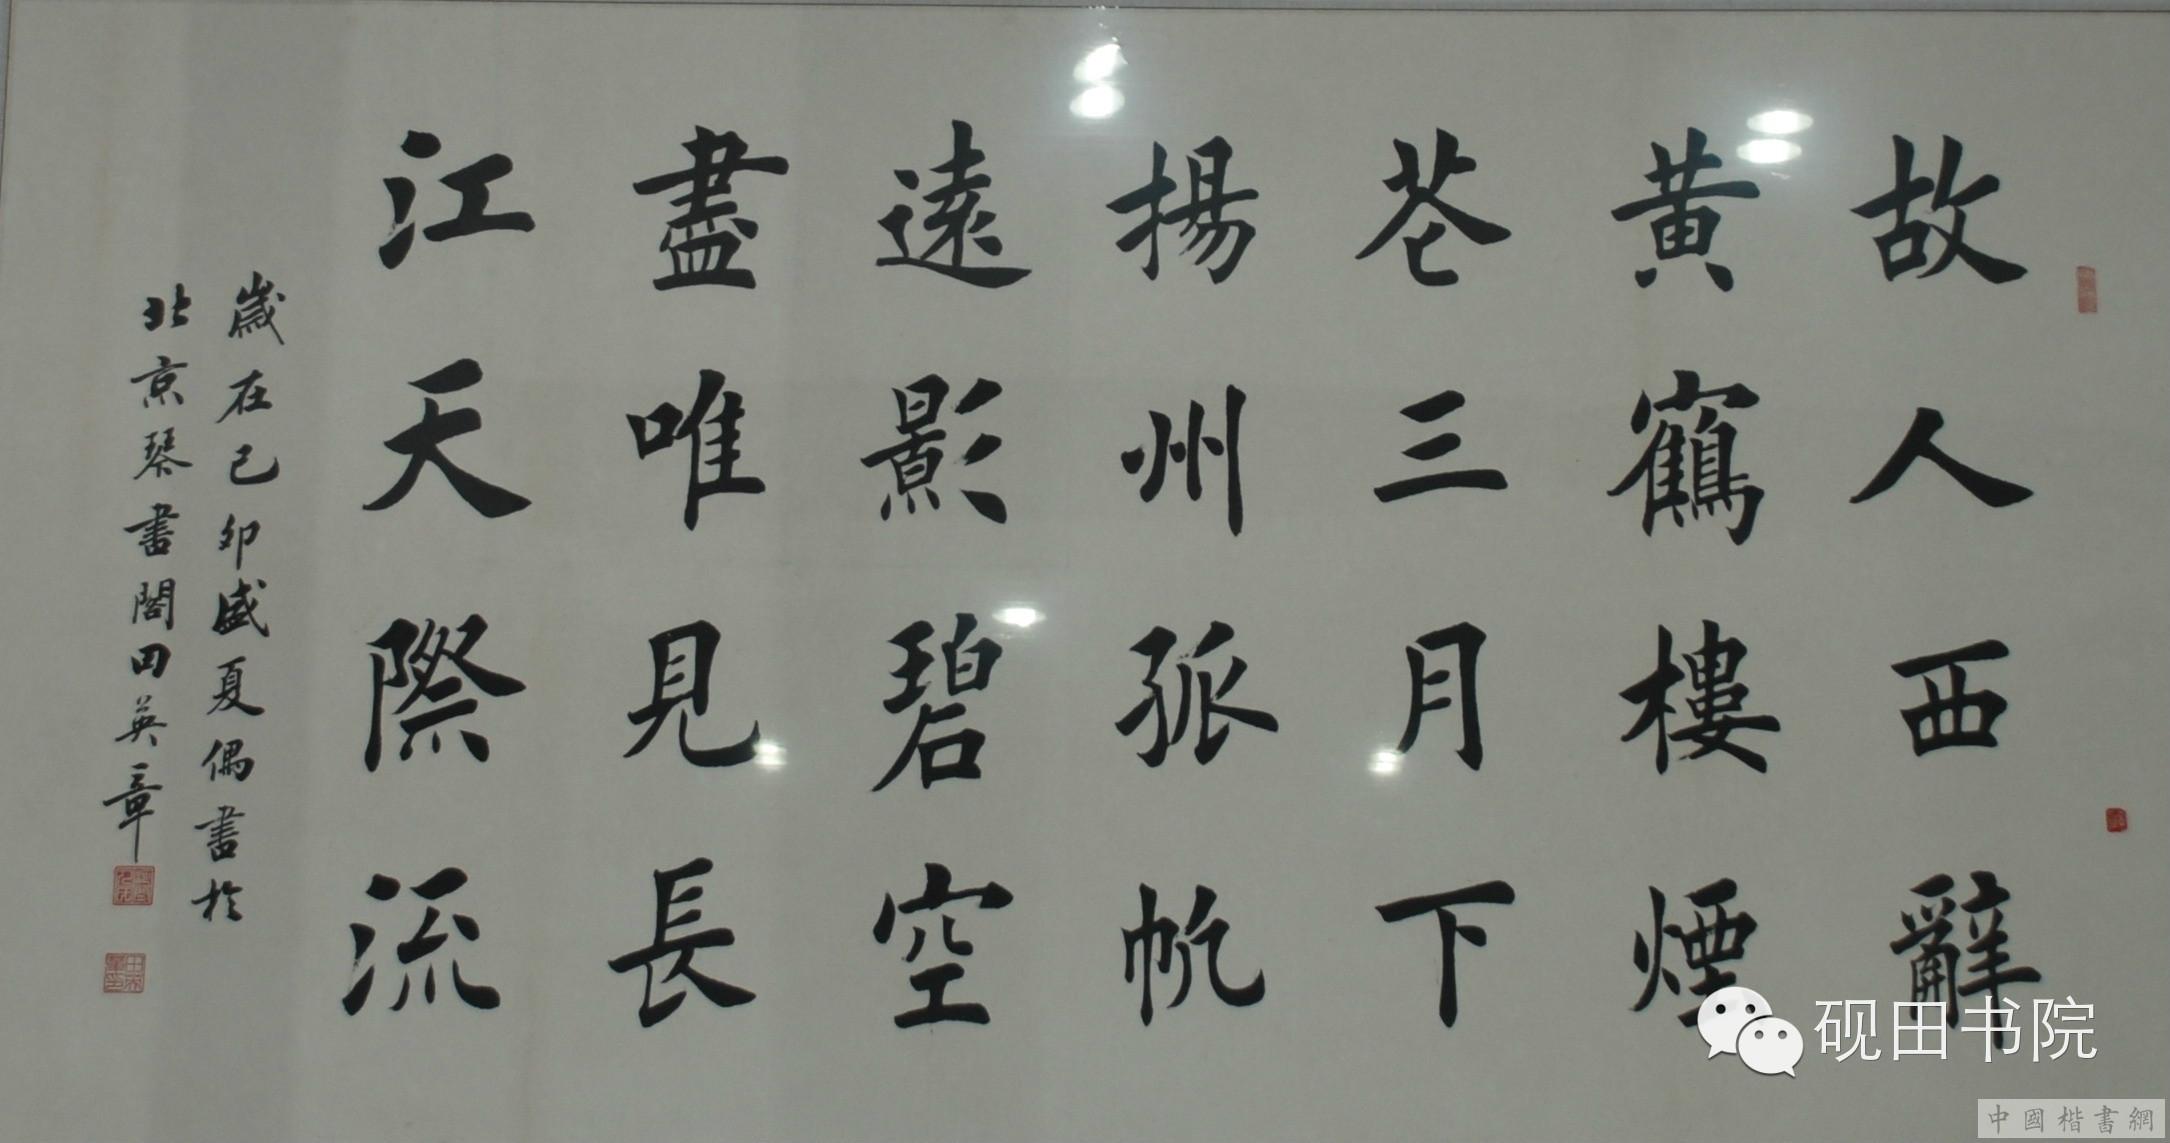 故人西辭
黃鶴樓煙
花三月下
揚州孤帆
遠影碧空
盡唯見長
江天際流
歲在己卯盛夏偶書於
北京琴書閣田英章
砚田书院
中國楷書網